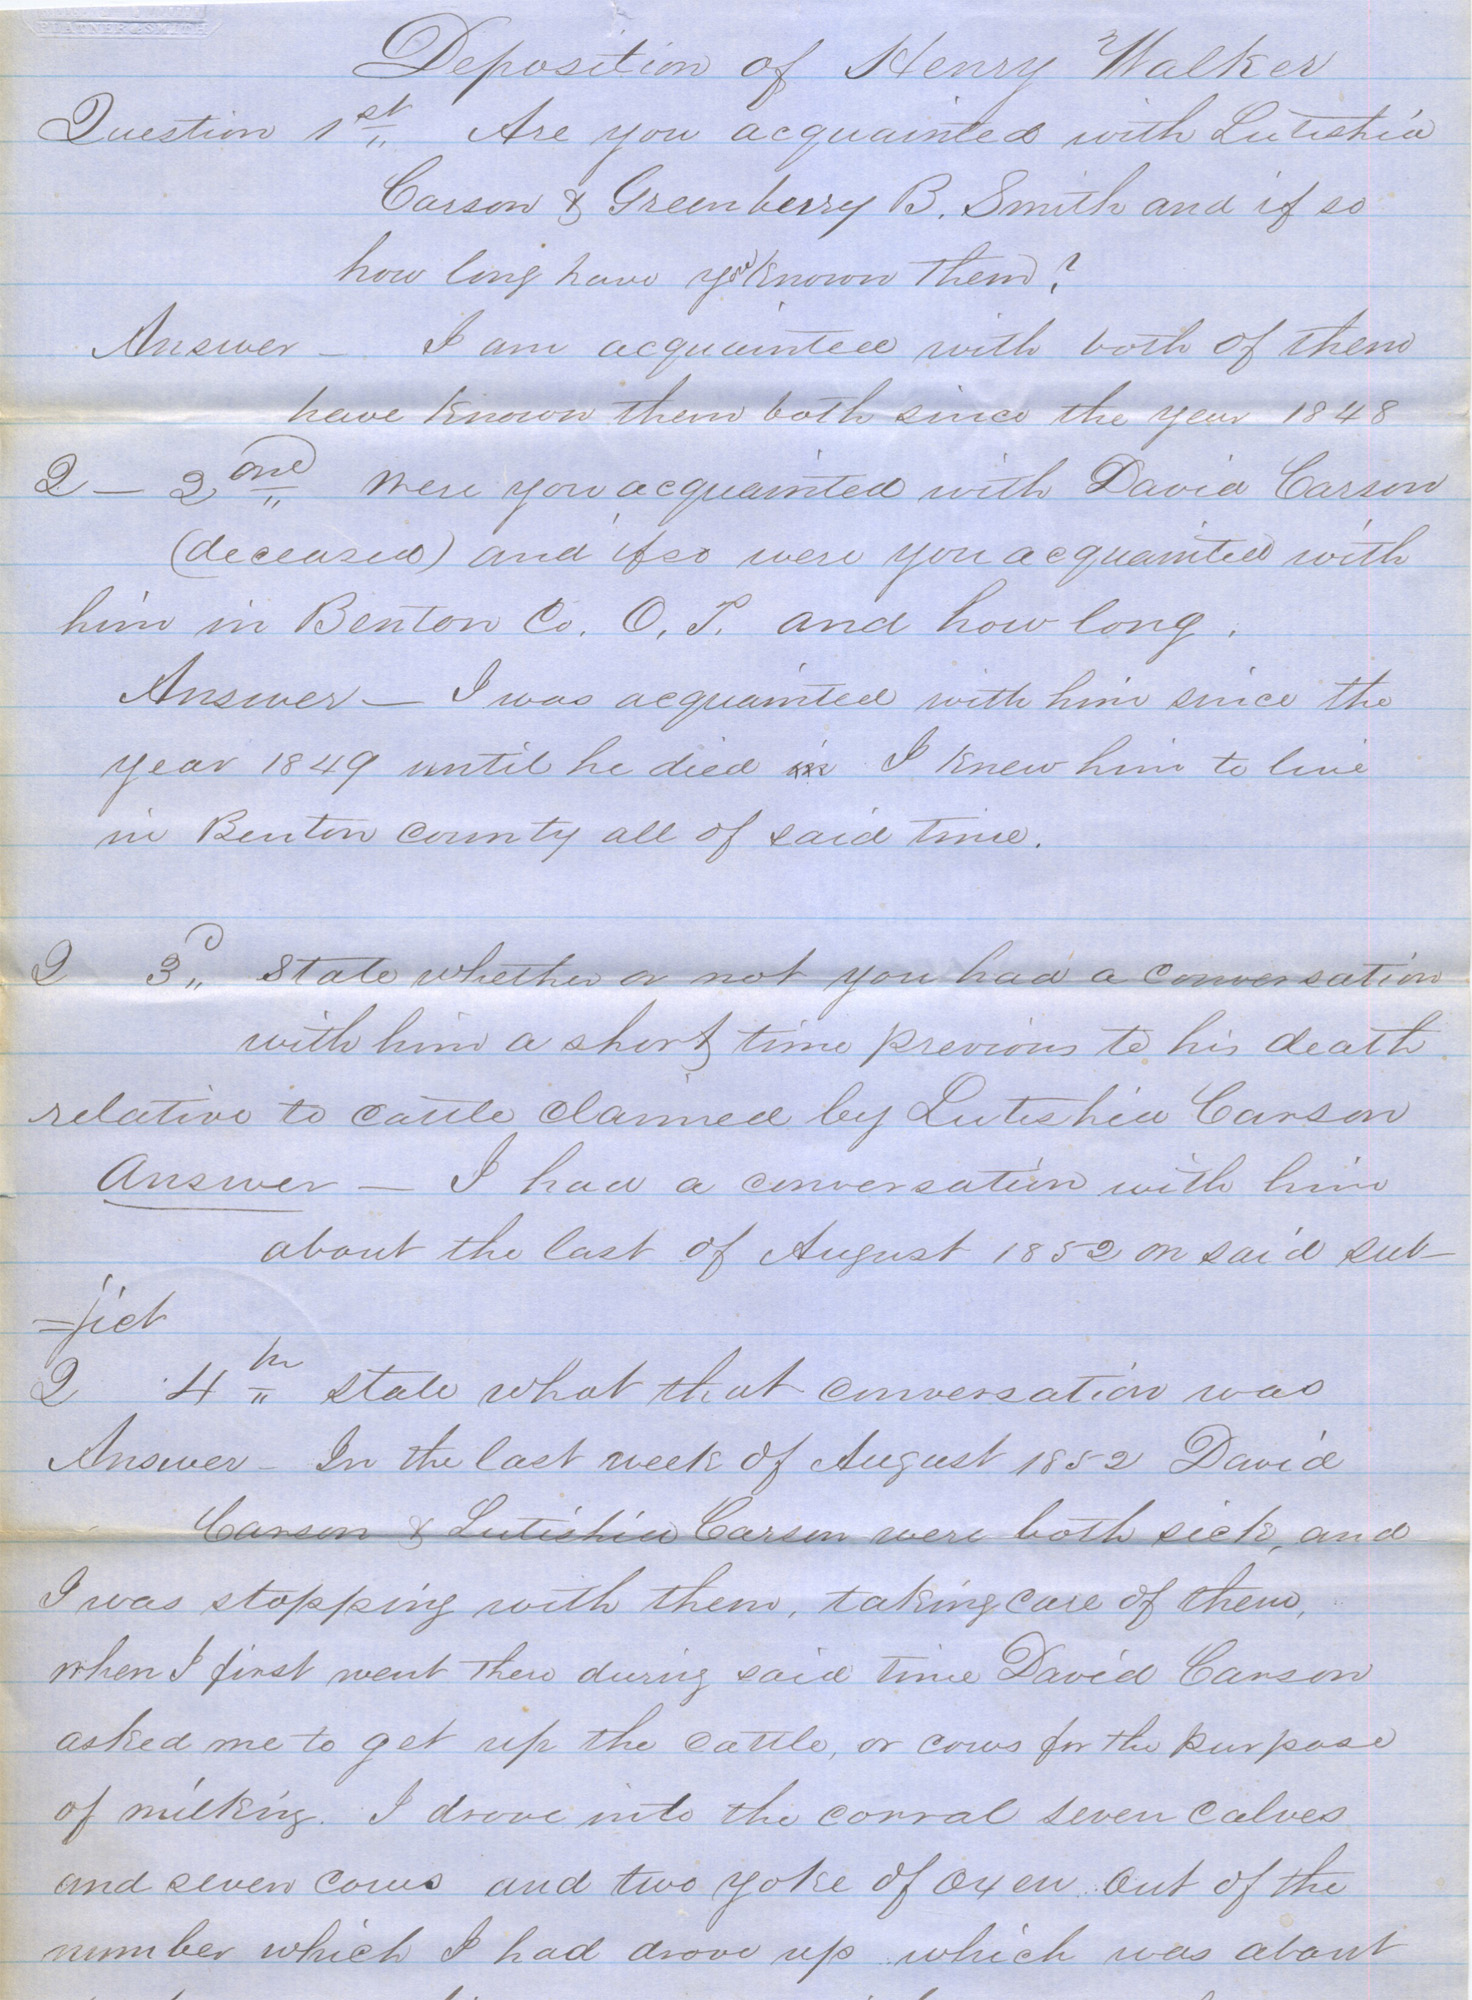 PLATNER & SMITH
Deposition of Henry Walker
Question 1st Are you acquainted with Lutishia
Carson & Greenberry B. Smith and if so
how long have you known them?
Answer – I am acquainted with both of them
have known them both since the year 1848
Q – 2ond Were you acquainted with David Carson
(deceased) and if so were you acquainted with
him in Benton Co. O. T. and how long.
Answer – I was acquainted with him since the
year 1849 until he died in I knew him to live
in Benton county all of said time.
Q 3d State whether or not you had a conversation
with him a short time previous to his death
relative to cattle claimed by Lutishia Carson
Answer – I had a conversation with him
about the last of August 1852 on said sub-
=ject
Q 4th State what that conversation was
Answer – In the last week of August 1852 David
Carson & Lutishia Carson were both sick, and
I was stopping with them, taking care of them,
when I first went there during said time David Carson
asked me to get up the cattle, or cows for the purpose
of milking. I drove into the corral seven calves
and seven cows and two yoke of oxen out of the
number which I had drove up which was about